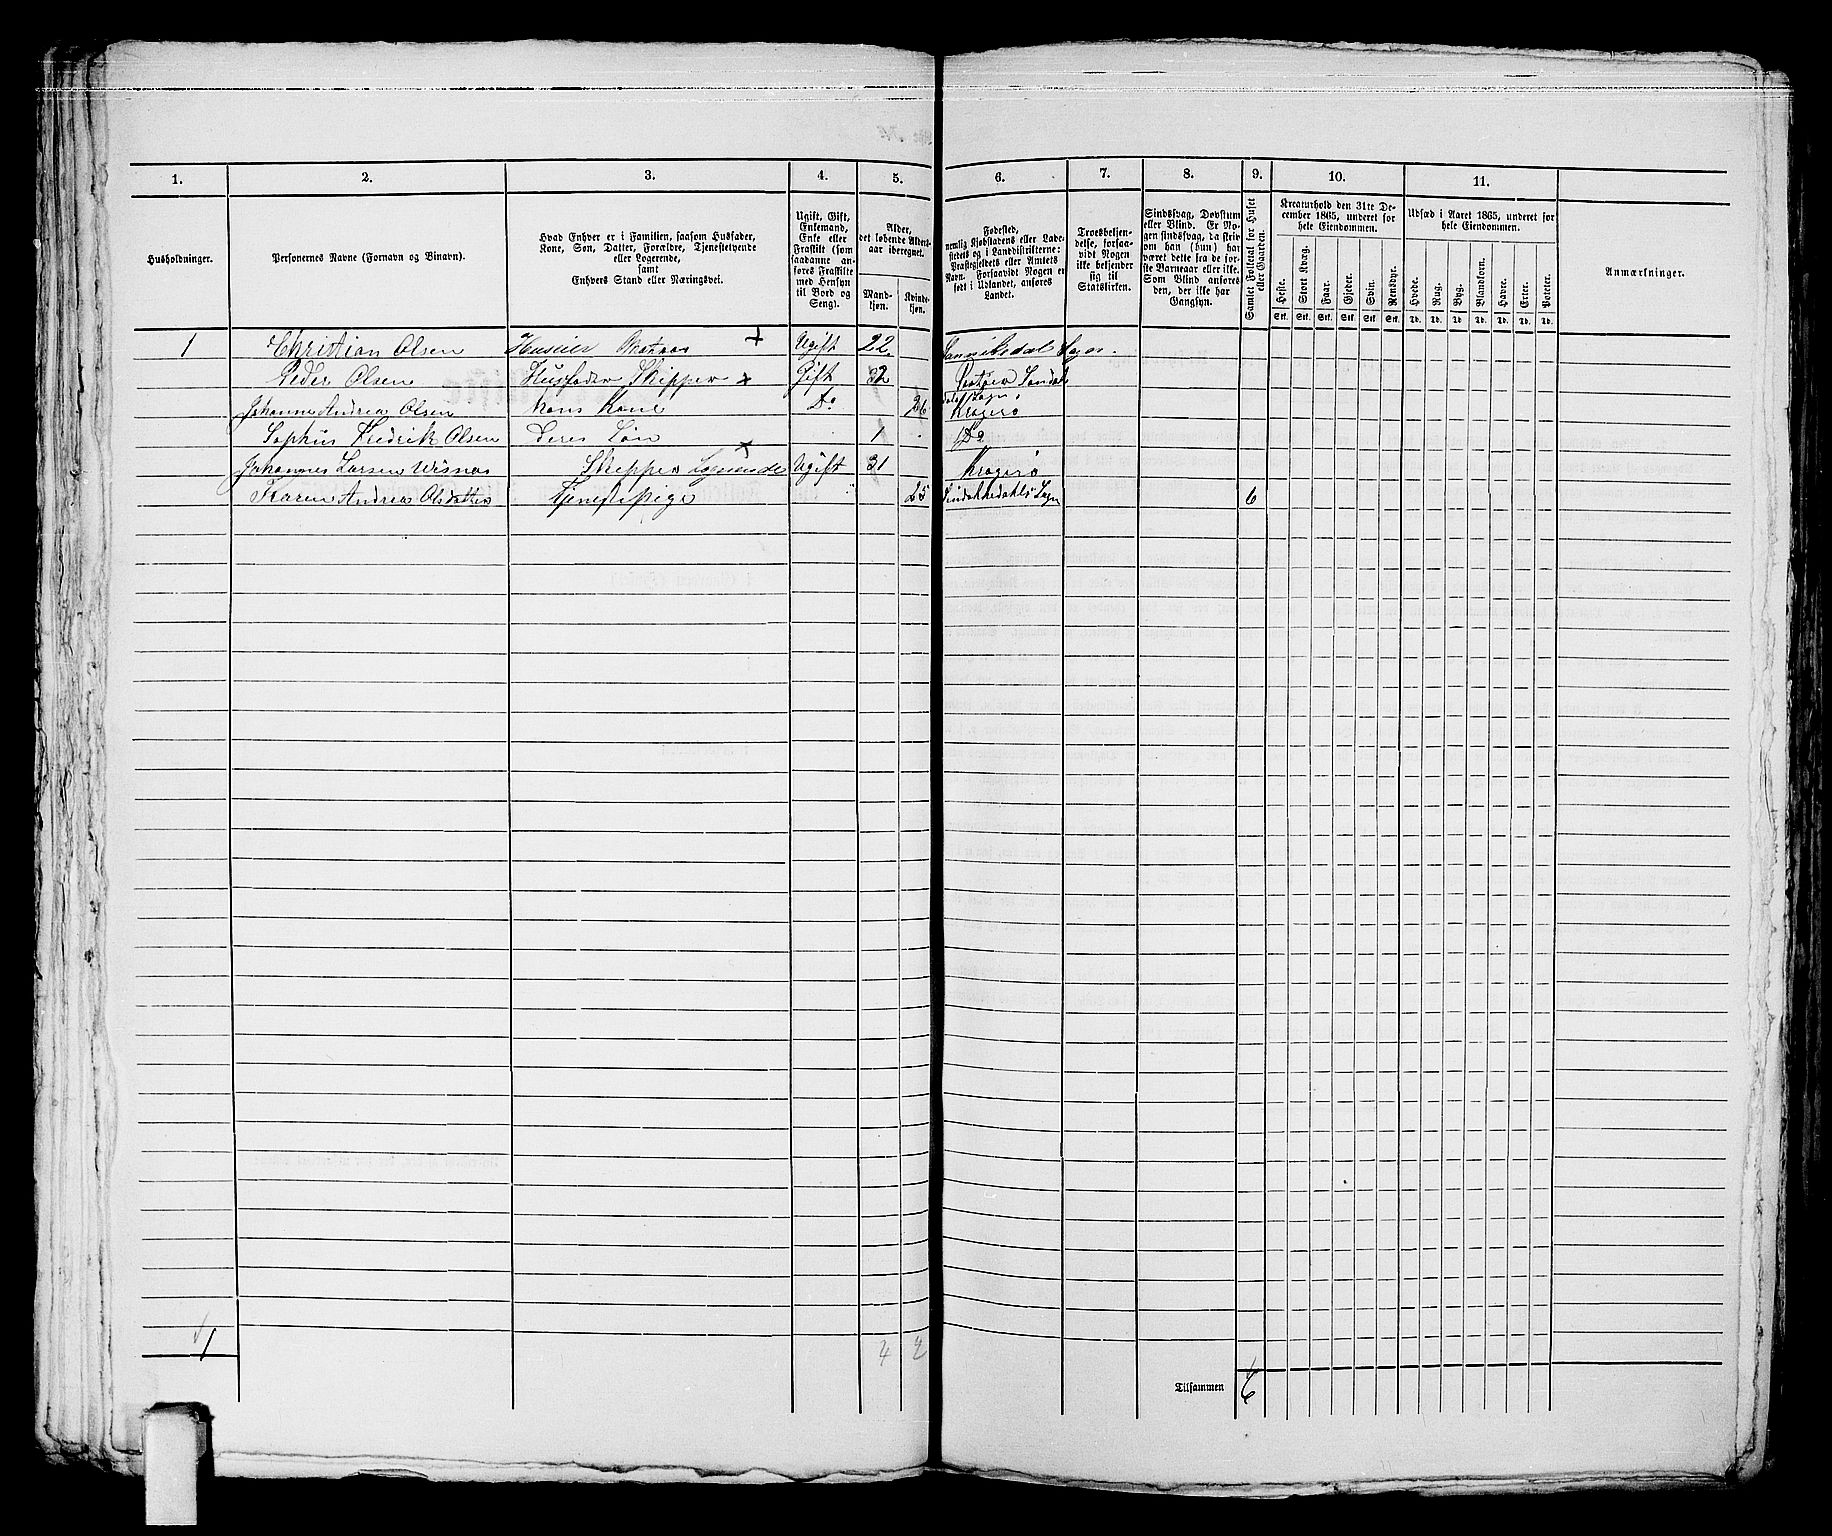 1. 2. 3. 4. 5. 6. 7. 8. 9. 10. 11.
Husholdninger.
Personernes Navne (Fornavn og Binavn).
Hvad Enhver er i Familien, saasom Husfader,
Kone, Søn, Datter, Forældre, Tjenestetyende
eller Logerende,
samt
Enhvers Stand eller Næringsvei.
Ugift, Gift,
Enkemand,
Enke eller
Fraskilt (som
saadanne an-
føres Fraskilte
med Hensyn
til Bord og
Seng).
Alder,
det løbende Alders-
aar iberegnet.
Mand-
kjøn.
Kvinde-
kjøn.
Fødested,
nemlig Kjøbstadens eller Lade-
stedets og i Landdistrikterne:
Præstegjeldets eller Amtets
Navn. Forsaavidt Nogen er
født i Udlandet, anføres
Landet.
Troesbekjen-
delse, forsaa-
vidt Nogen
ikke bekjender
sig til
Statskirken.
Sindssvag, Døvstum
eller Blind. Er No-
gen sindssvag, da skriv
om han (hun) har
været dette fra de før-
ste Barneaar eller ikke.
Som Blind anføres
den, der ikke har
Gangsyn.
Samlet Folketal for Huset
eller Gaarden.
Kreaturhold den 31te De-
cember 1865, underet for
hele Eiendommen.
Heste. Stort Kvæg. Faar. Gjeder. Svin. Rensdyr.
Stk. Stk. Stk. Stk. Stk. Stk.
Udsæd i Aaret 1865, underet for
hele Eiendommen.
Hvede. Rug. Byg. Blandkorn. Havre. Erter. Poteter.
Td. Td. Td. Td. Td. Td. Td.
Anmærkninger.
1 Christian Olsen Huseier + Ugift 22 Sannikedal Sogn.
Peder Olsen Husfader Skipper x Gift 32
Johanne Andrea Olsen hans Kone Do 26 Kragerø
Sophus Fredrik Olsen deres Søn 1 Do
Johannes Larsen Skipper Logerende x Ugift 31 Kragerø
Karen Andrea Olsdatter Tjenestepige " 25 Sogn 6
1 4 2
Tilsammen 6